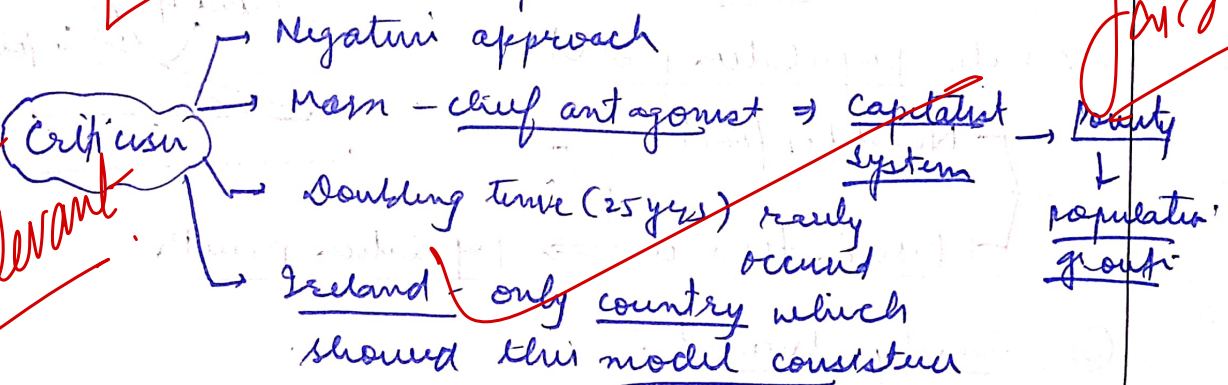 Negative approach
Criticism
Marx - chief antagonist ⇒ capitalist system → Poverty ↓ population growth
Doubling time (25 yrs) rarely occured
Ireland - only country which
showed this model
levant.